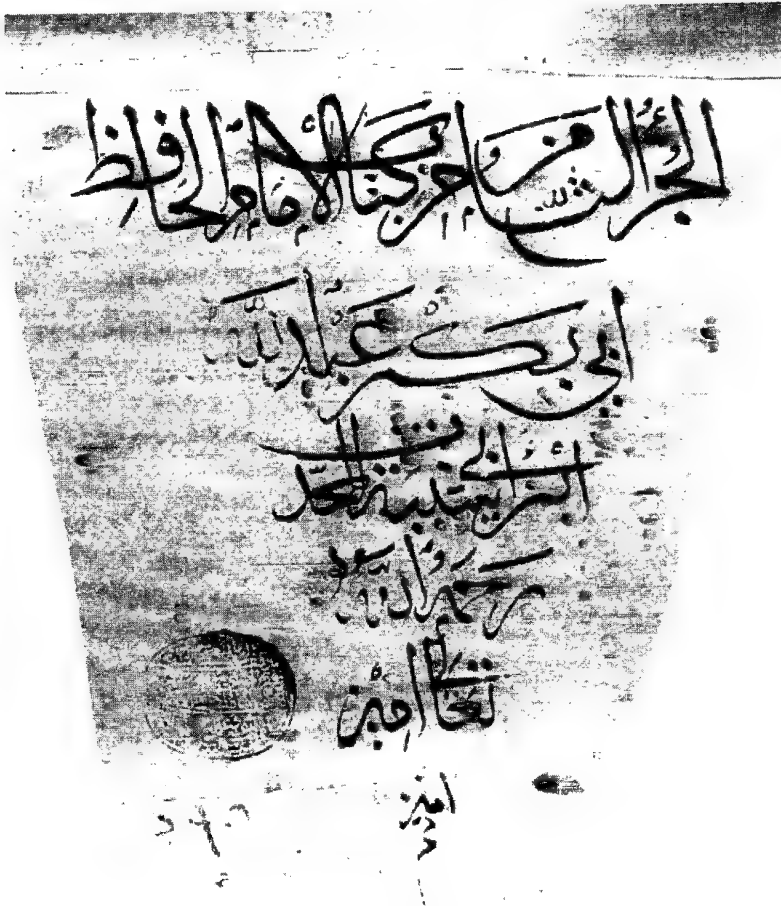 الجزء الثالث من كتاب الامام الحافظ
ابي بكر عبد الله
ابن ابي شيبة المحدث
رحمه الله
تعالى امين
امين